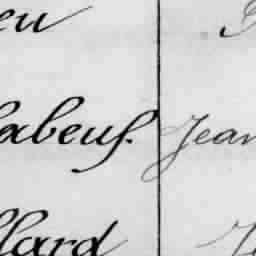 eu
labeuf. Jean
llard